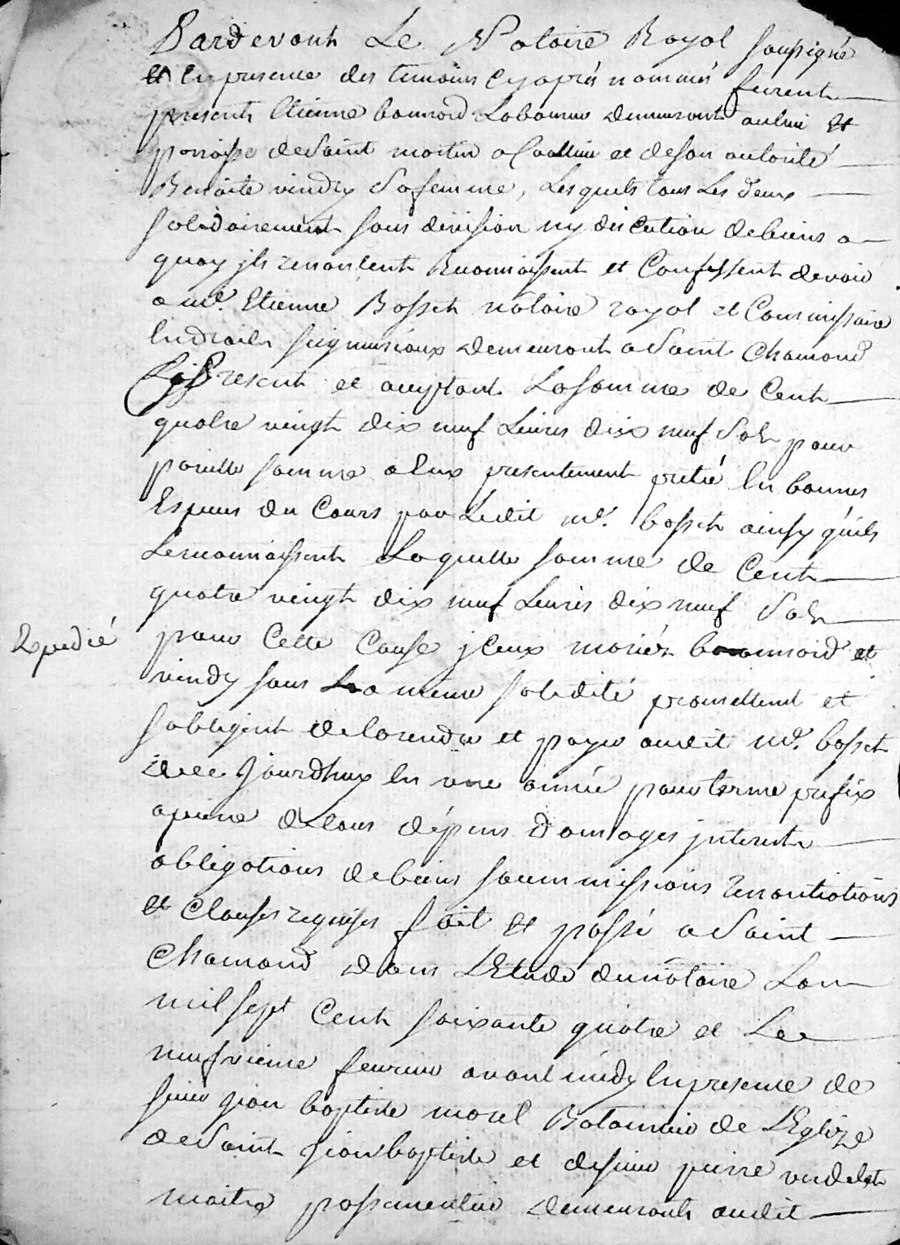 Pardevant Le Notaire Royal soussigné
et En presence des temoins Cyaprés nommés furent
presents Etienne Laboureur demeurant au lieu et
paroisse de Saint martin a Coallieu et de son autorité
Benoite vindry Sa femme, Lesquels tous Les deux
solidairement sans division ny discution de biens a
quoy jls renontent Reconnaissent et Confessent devoir
a me. Etienne Bosset notaire royal et Commissaire
En droits seigneuriaux demeurant a Saint Chamond
Cy Present et acceptant La somme de Cent
quatre vingt dix neuf Livres dix neuf Sols pour
pareille somme a Eux presentement preté En bonnes
Especes du Cours par Ledit me. bosset ainsy quils
Le reconnaissent Laquelle somme de Cent
quatre vingt dix neuf Livres dix neuf Sols
Expedié
pour Cette Cause jCeux mariés et
vindry sous La meme solidité promettent et
sobligent de la rendre et payer audit me. bosset
dece Jourdhuy En une année pour terme prefix
a peine de tous dépens domages jnterests
obligations de biens soummissions renontiations
et Clauses requises fait et passé a Saint
Chamond dans LEtude du notaire Lan
mil sept Cent soixante quatre et Le
neufvieme fevrier avant midy En presence de
sieur jean baptiste morel Batonnier de LEglize
de Saint jean baptiste et de sieur pierre verdelet
maitre passementier demeurants audit